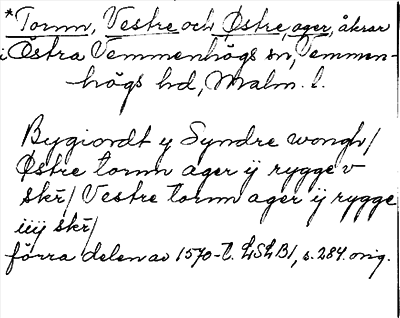 *Tornn, Vestre och Østre, ager, åkrar
i Östra Vemmenhögs sn, Vemmen-
högs hd, Malm. l.
Bygiordt y Syndre wongh/
Østre tornn ager ÿ rygge v
skr̄/ Vestre tornn ager ÿ rygge
iiÿ skr̄/
förra delen av 1570-t. LSLB1, s. 284. orig.